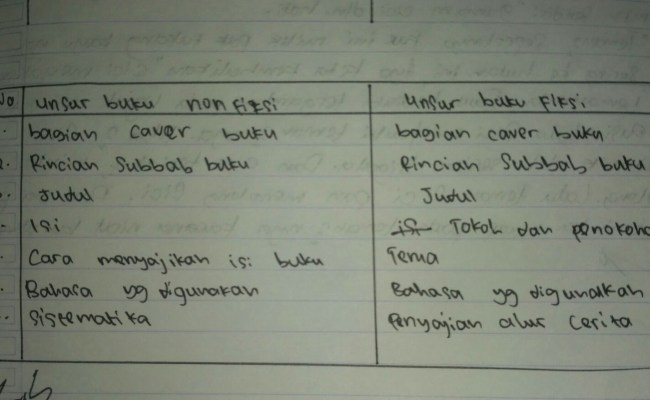 No unsur buku non fiksi unsur buku fiksi
bagian caver buku bagian caver buku
Rincian Subbab buku Rincian Subbab buku
Judul Judul
Isi Tokoh dan penokoha
Cara menyajikan isi buku Tema
Bahasa yg digunakan Bahasa yg digunakan
Sistematika Penyajian alur Cerita